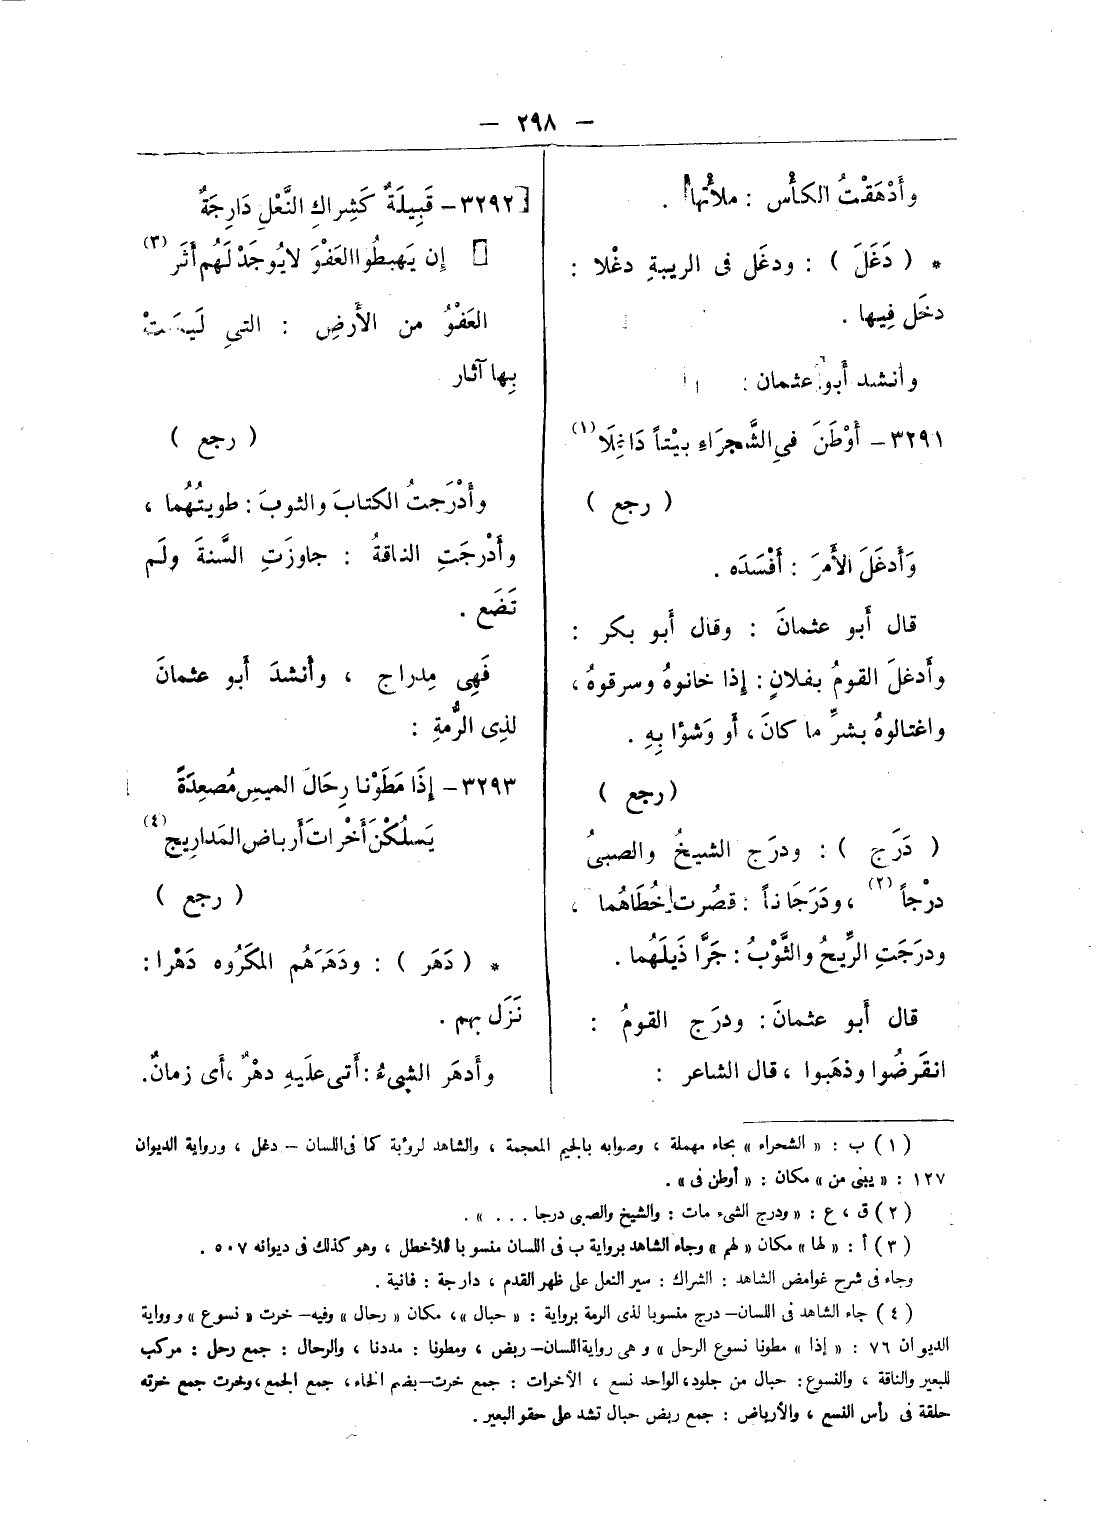 — ٢٩٨ —
وأَدْهَقْتُ الكأْس : ملأْتها .
* ( دَغَلَ ) : ودغَل فى الريبةِ دغْلا :
دخَل فِيها .
وأنشد أَبو عثمان :
٣٢٩١ – أَوْطَنَ فيِ الشَّجرَاءِ بيْتاً دَاغِلَا (١)
( رجع )
وَأَدغَلَ الأَمرَ : أَفْسَدَه .
قال أَبو عثمانَ : وقال أَبو بكر :
وأَدغلَ القومُ بفلانٍ : إِذا خانوهُ وسرقوهُ ،
واغتالوهُ بشرٍّ ما كانَ ، أَو وَشوْا بِهِ .
( رجع )
( دَرَج ) : ودرَج الشيخُ والصبىُ
درْجاً (٢) ، ودَرَجَاناً : قصُرت خُطَاهُما ،
ودرَجَتِ الرِّيحُ والثَّوْبُ : جَرَّا ذَيلَهُما .
قال أَبو عثمانَ : ودرَج القومُ :
انقَرضُوا وذهَبوا ، قال الشاعر :
[ ٣٢٩٢ – قَبِيلَةٌ كَشِراكِ النَّعْلِ دَارِجَةٌ
إِن يَهبطُوا العَفْوَ لايُوجَدْ لَهُم أَثَر (٣)
العَفْوُ من الأَرضِ : التىِ لَيسَتْ
بِها آثار
( رجع )
وأَدْرَجتُ الكتابَ والثوبَ : طويتُهُما ،
وأَدْرجَتِ الناقةُ : جاوزَتِ السَّنةَ ولَم
تَضَع .
فَهِى مِدراج ، وأَنشدَ أَبو عثمانَ
لذِى الرُّمةِ :
٣٢٩٣ – إِذَا مَطَوْنا رِحَالَ الميسِ مُصعِدَةً
يَسلُكْنَ أَخْراتَ أَرباضِ المَدارِيجِ (٤)
( رجع )
* ( دَهَر ) : ودَهَرَهُم المكرُوه دَهْرا :
نَزَل بهم .
وأَدهَر الشىءُ : أَتى علَيهِ دهْرٌ ، أَى زمانٌ .
(١) ب : « الشحراء » بحاء مهملة ، وصوابه بالجيم المعجمة ، والشاهد لرؤبة كما فى اللسان – دغل ، ورواية الديوان
١٢٧ : « يبنى من » مكان : « أوطن فى » .
(٢) ق ، ع : « ودرج الشىء مات : والشيخ والصبى درجا . . . » .
(٣) أ : « لها » مكان « لهم » وجاء الشاهد برواية ب فى اللسان منسوبا للأخطل ، وهو كذلك فى ديوانه ٥٠٧ .
وجاء فى شرح غوامض الشاهد : الشراك : سير النعل على ظهر القدم ، دارجة : فانية .
(٤) جاء الشاهد فى اللسان – درج منسوبا لذى الرمة برواية : « حبال » ، مكان « رحال » وفيه – خرت « نسوع » ورواية
الديوان ٧٦ : « إذا » مطونا نسوع الرحل » وهى رواية اللسان – ربض ، ومطونا : مددنا ، والرحال : جمع رحل : مركب
للبعير والناقة ، والنسوع : حبال من جلود ، الواحد نسع ، الأخرات : جمع خرت – بضم الخاء ، جمع الجمع ، وخرت جمع خرته
حلقة فى رأس النسع ، والأرياض : جمع ربض حبال تشد على حقو البعير .